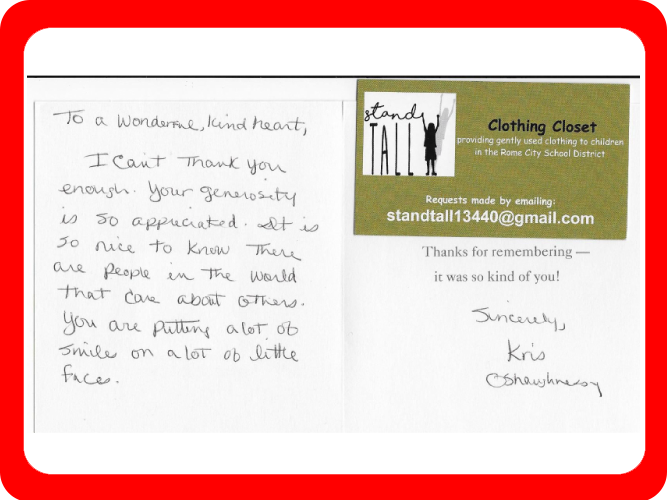 To a Wonderful, kind heart,
I Can't Thank you
enough. Your generosity
is so appriciated. It is
so nice to know There
are people in the world
that care about others.
You are putting alot of
smile on alot of little
faces.
stand
TALL
Clothing Closet
providing gently used clothing to children
in the Rome City School District
Requests made by emailing:
standtall13440@gmail.com
Thanks for remembering —
it was so kind of you!
Sincerely,
Kris